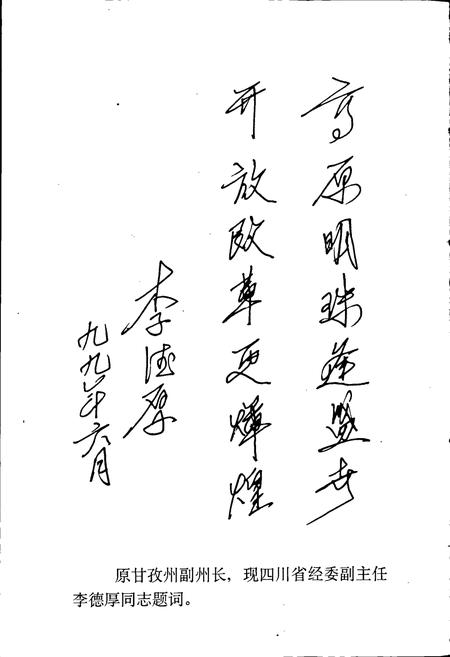 高原明珠逢盛世
开放改革更辉煌
李德厚
九九年六月
原甘孜州副州长，现四川省经委副主任
李德厚同志题词。